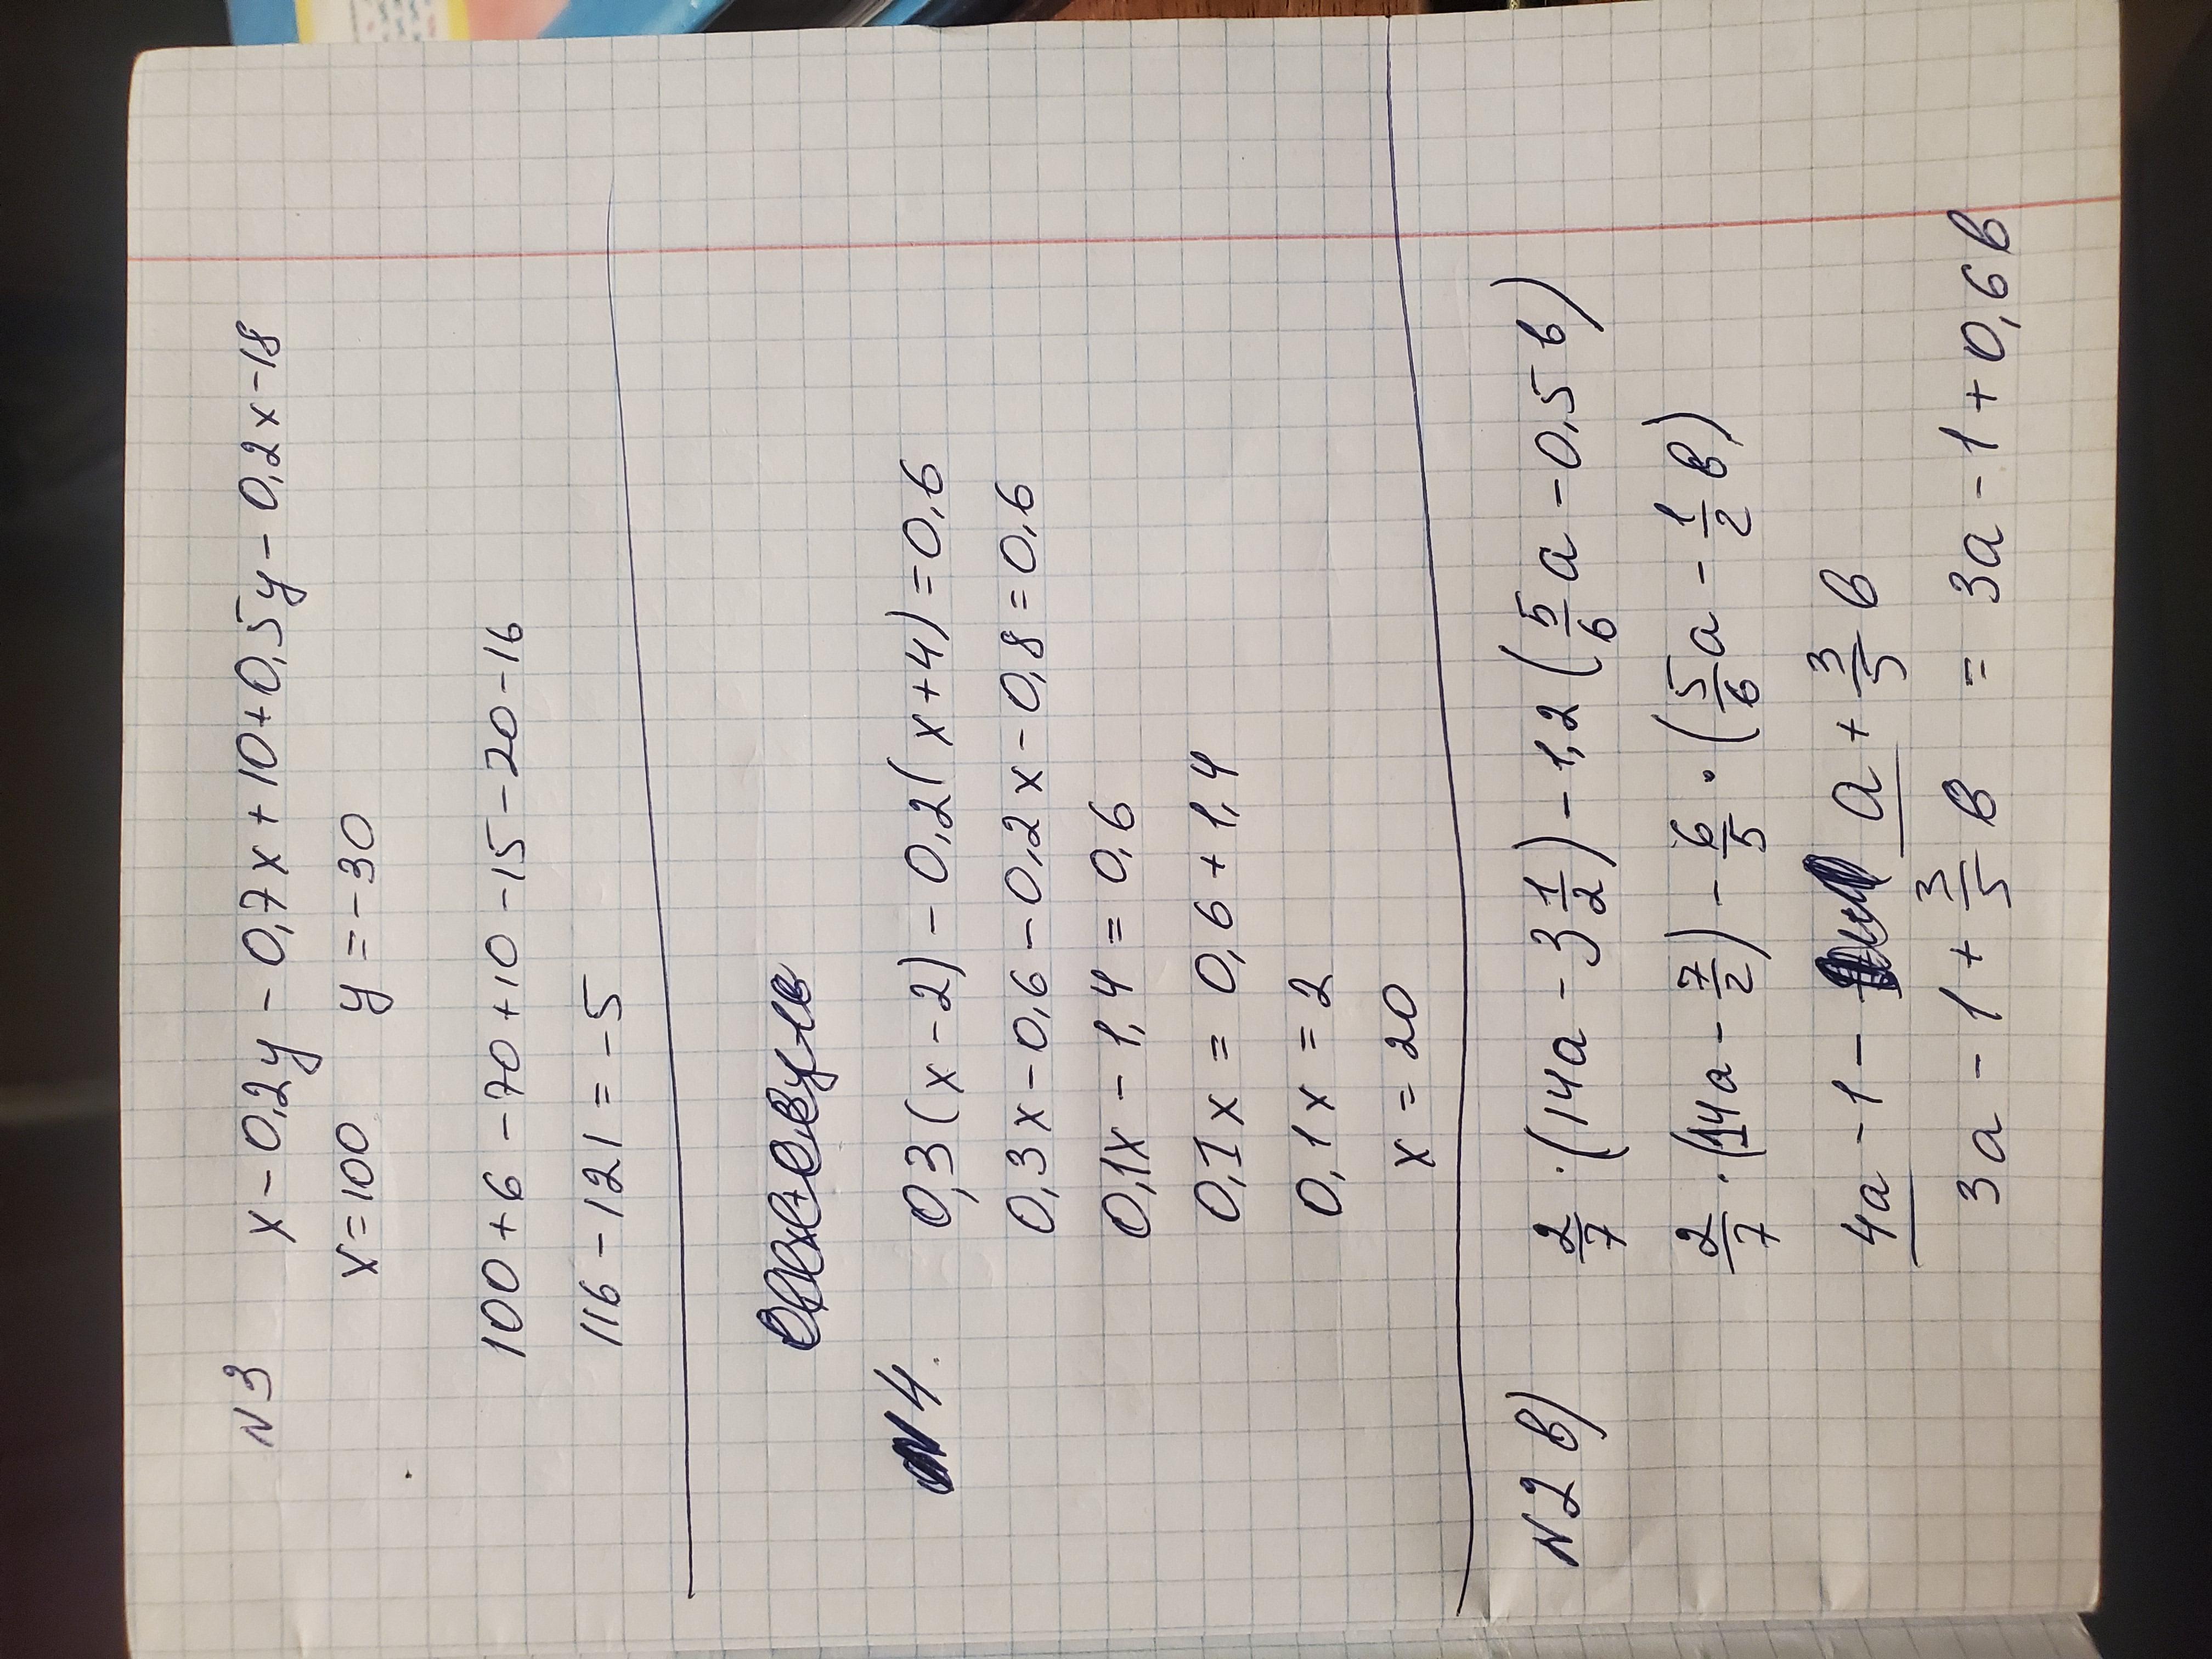 N3 x-0,2y-0,7x+10+0,5y-0,2x-18
x=100 y=-30
100+6-70+10-15-20-16
116-121=-5
N4. 0,3(x-2)-0,2(x+4)=0,6
0,3x-0,6-0,2x-0,8=0,6
0,1x-1,4=0,6
0,1x=0,6+1,4
0,1x=2
x=20
N2 в) 2/7·(14a-3 1/2)-1,2(5/6a-0,5b)
2/7·(14a-7/2)-6/5·(5/6a-1/2в)
4a-1-a+3/5в
3a-1+3/5в = 3a-1+0,6в